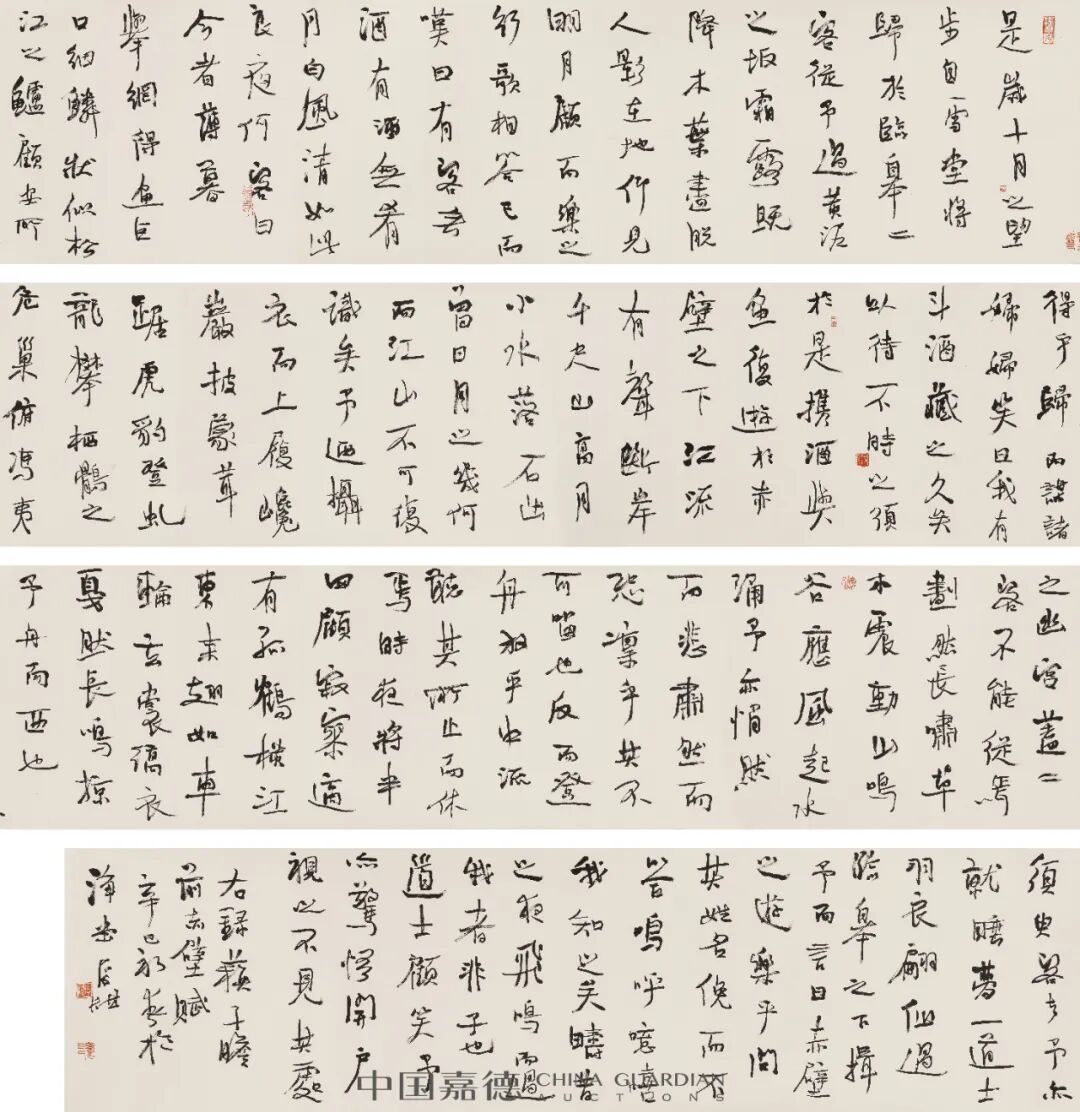 是歲十月之望
步自雪堂將
歸於臨皋二
客從予過黃泥
之坂霜露既
降木葉盡脫
人影在地仰見
明月顧而樂之
行歌相答已而
嘆曰有客無
酒有酒無肴
月白風清如此
良夜何客曰
今者薄暮
舉網得魚巨
口細鱗狀似松
江之鱸顧安所
得乎歸而謀諸
婦婦笑曰我有
斗酒藏之久矣
以待不時之須
於是攜酒與
魚復遊於赤
壁之下江流
有聲斷岸
千尺山高月
小水落石出
曾日月之幾何
而江山不可復
識矣予迺攝
衣而上履巉
巖披蒙茸
踞虎豹登虬
龍攀栖鶻之
危巢俯馮夷
之幽宮蓋二
客不能從焉
劃然長嘯草
木震動山鳴
谷應風起水
涌予亦悄然
而悲肅然而
恐凜乎其不
可留也反而登
舟放乎中流
聽其所止而休
焉時夜將半
四顧寂寥適
有孤鶴橫江
東來翅如車
輪玄裳縞衣
戛然長鳴掠
予舟而西也
須臾客去予亦
就睡夢一道士
羽衣翩仙過
臨皋之下揖
予而言曰赤壁
之遊樂乎問
其姓名俛而不
答嗚呼噫嘻
我知之矣疇昔
之夜飛鳴而過
我者非子也
道士顧笑予
亦驚悟開戶
視之不見其處
右錄蘇子瞻
前赤壁賦
辛巳初春於
中国嘉德 CHINA GUARDIAN
AUCTIONS